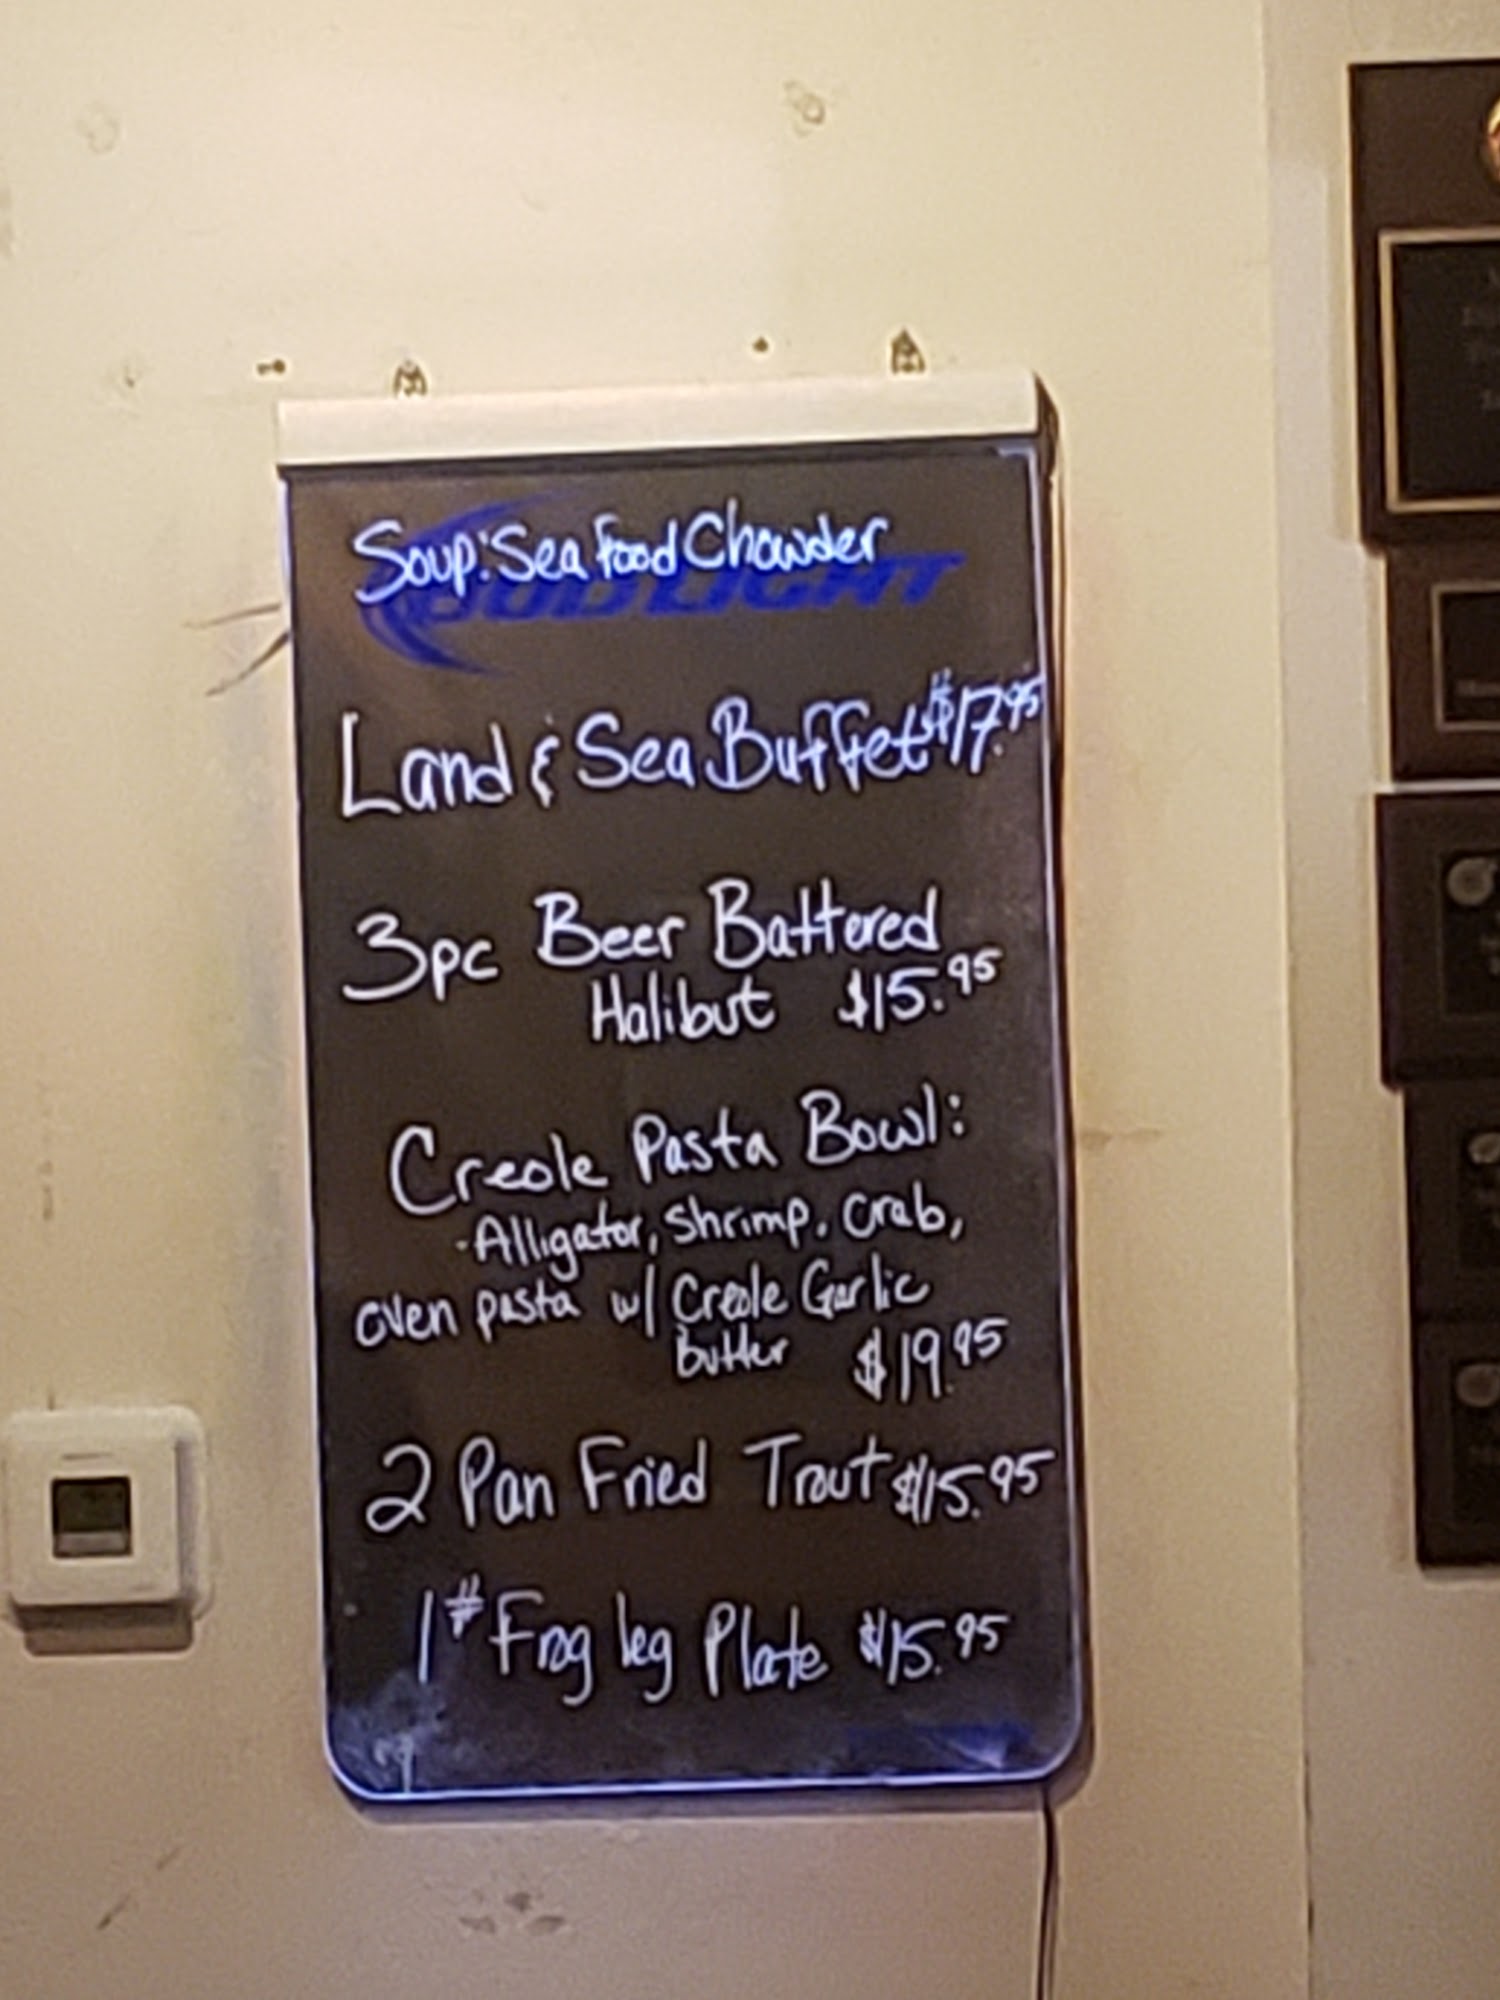 Soup: Seafood Chowder
BUD LIGHT
Land & Sea Buffet $17.95
3pc Beer Battered
Halibut $15.95
Creole Pasta Bowl:
- Alligator, Shrimp, Crab,
oven pasta w/ Creole Garlic
butter $19.95
2 Pan Fried Trout $15.95
1# Frog leg Plate $15.95